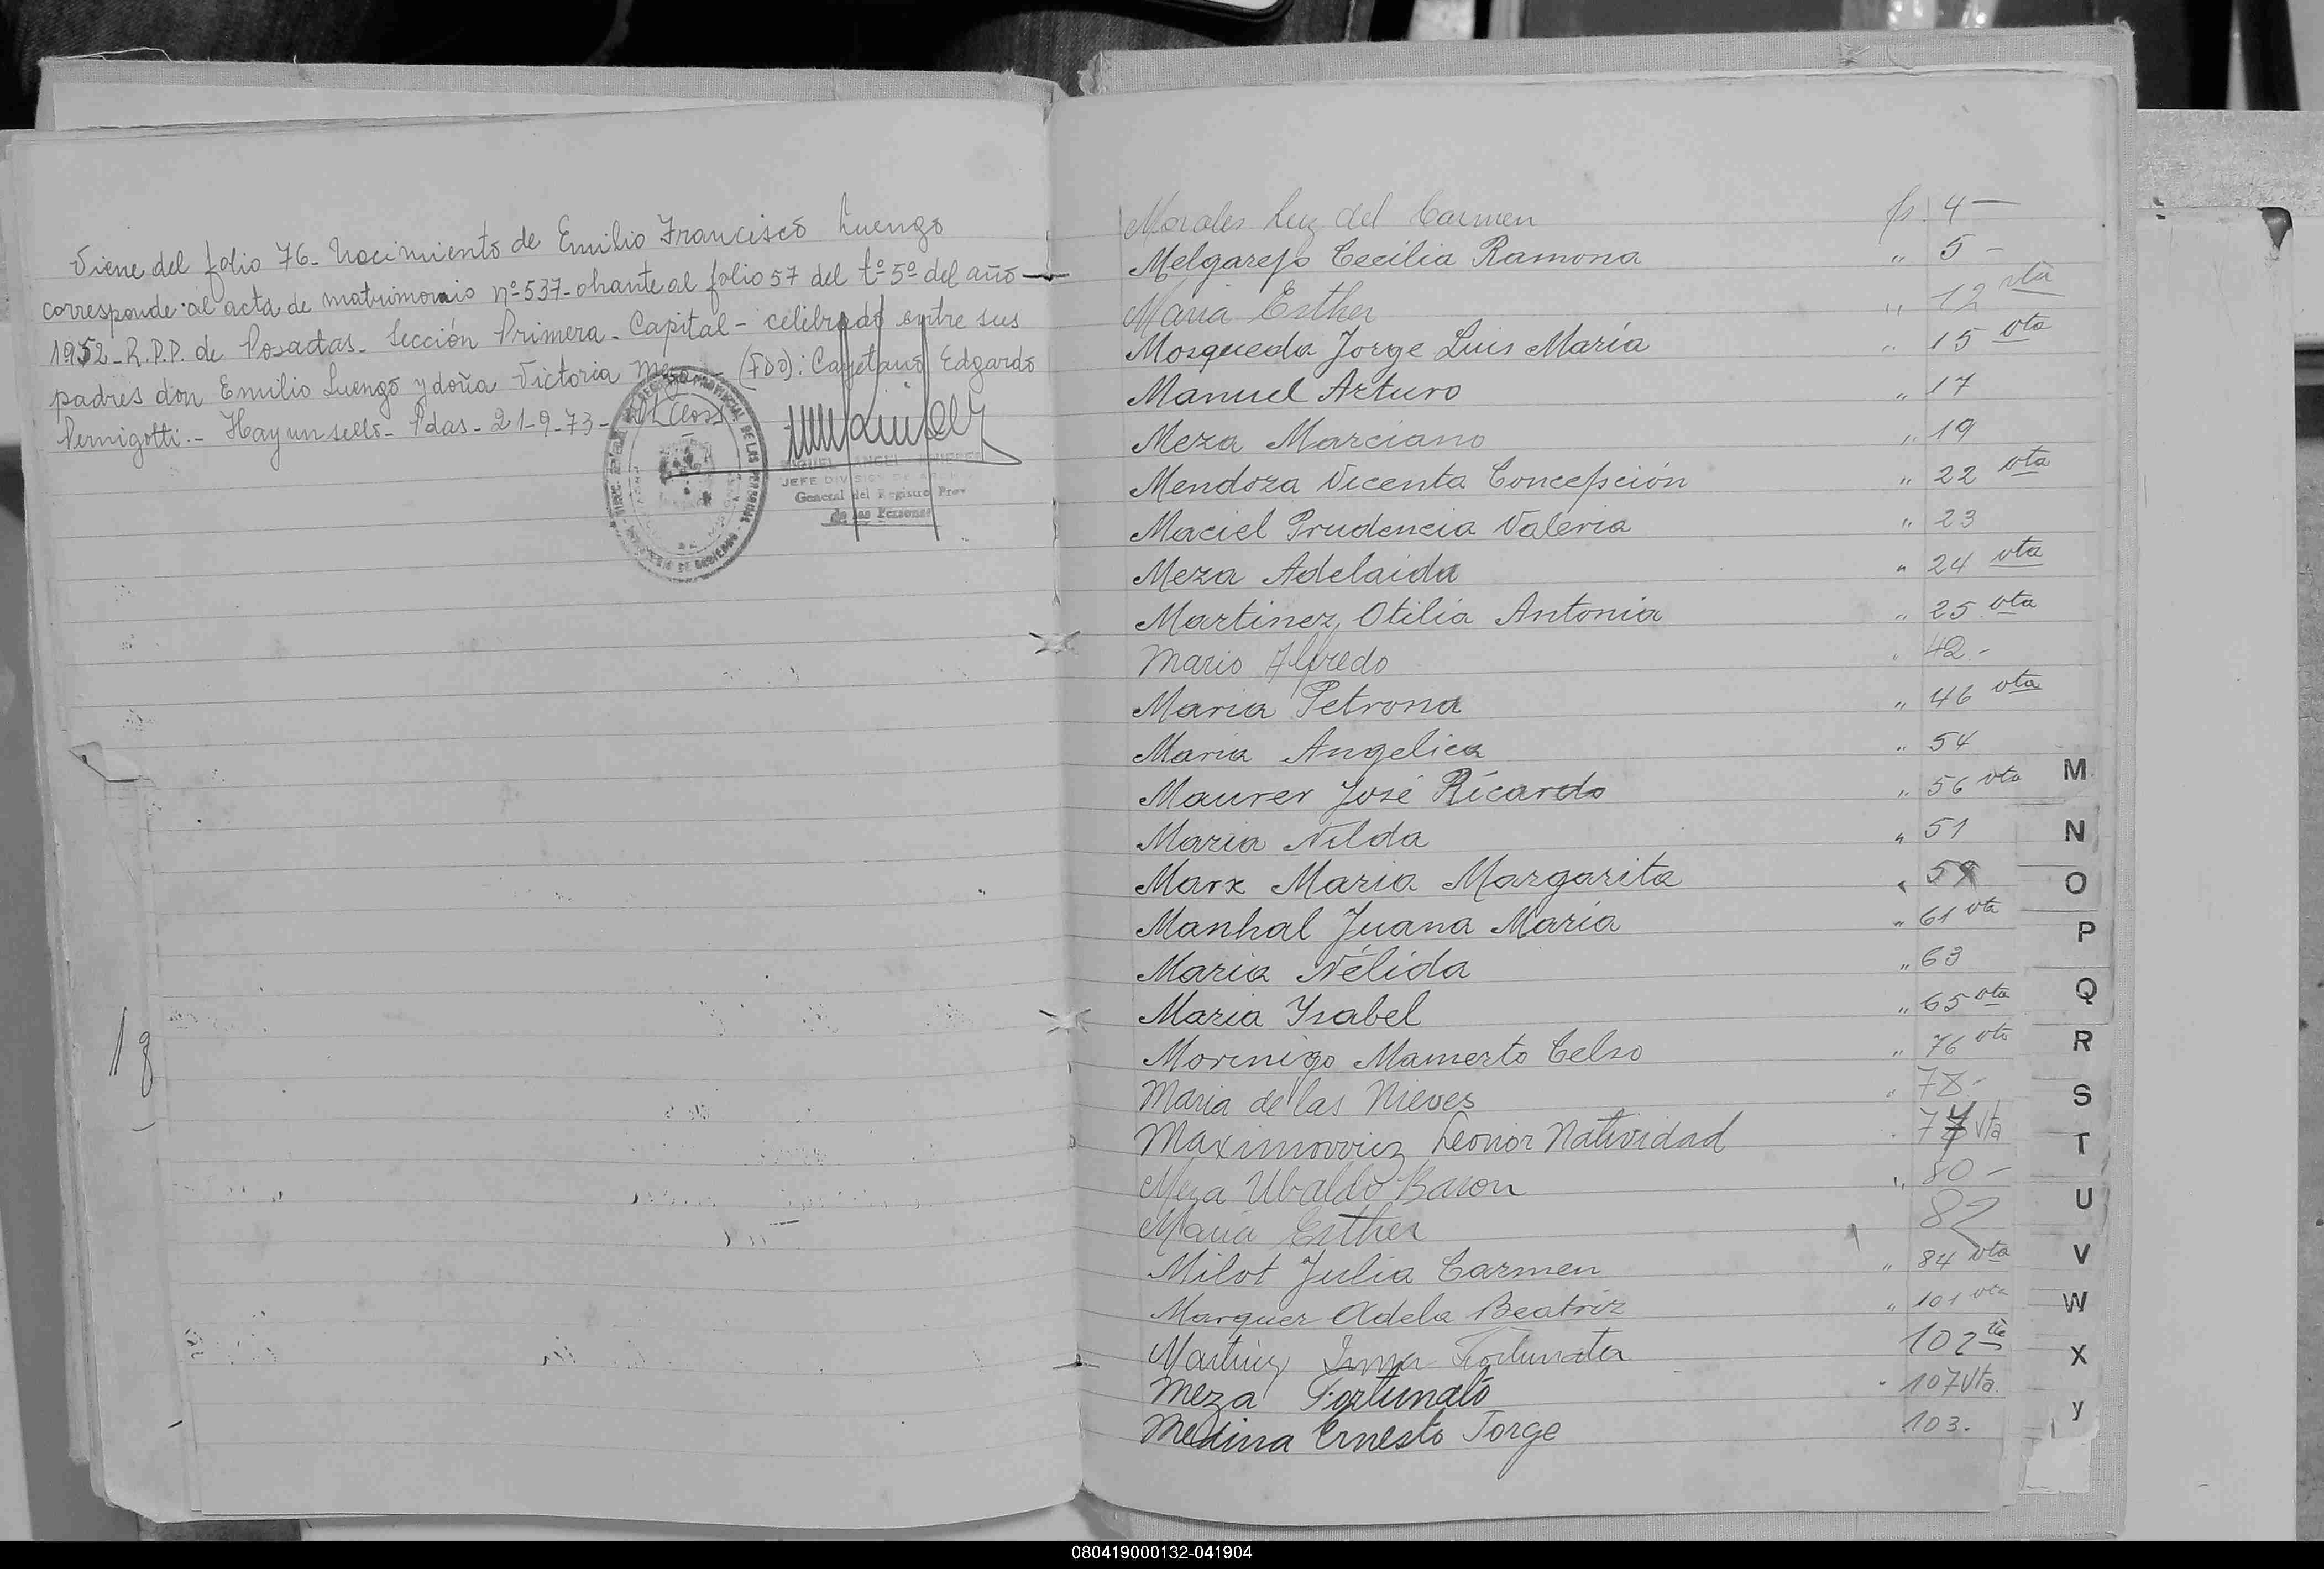 Viene del folio 76- Nacimiento de Emilio Francisco Luengo
corresponde al acta de matrimonio nº 537- obrante al folio 57 del tº 5º del año
1952- R.P.P. de Posadas- Sección Primera- Capital- celebrado entre sus
padres don Emilio Luengo y doña Victoria (FDO): Cayetano Edgardo
Pernigotti.- Hay un sello- Pdas- 21-9-73-
JEFE DIVISION DE
General del Registro Prov
de las Personas
1
Morales Luz del Carmen fs. 4-
Melgarejo Cecilia Ramona " 5-
Maria Esther " 12 vta
Mosqueda Jorge Luis María " 15 vta
Manuel Arturo " 17
Meza Marciano " 19
Mendoza Vicenta Concepción " 22 vta
Maciel Prudencia Valeria " 23
Meza Adelaida " 24 vta
Martinez Otilia Antonia " 25 vta
Mario Alfredo " 42.-
Maria Petrona " 46 vta
Maria Angelica " 54
Maurer José Ricardo " 56 vta
Maria Nilda " 51
Marx Maria Margarita "
Manhal Juana María " 61 vta
Maria Nélida " 63
Maria Ysabel " 65 vta
Morinigo Mamerto Celso " 76 vta
Maria de las Nieves " 78-
Leonor Natividad vta
Meza Ubaldo Baron " 80-
Maria Esther 82
Milot Julia Carmen " 84 vta
Marquez Adela Beatriz " 101 vta
Martinez Irma Fortunata 102 vta
Meza Fortunato " 107 Vta.
Medina Ernesto Jorge 103.
M
N
O
P
Q
R
S
T
U
V
W
X
y
080419000132-041904